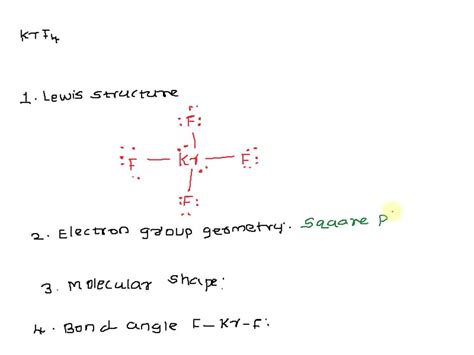 KrF4
1. Lewis structure
:F:
:F — Kr — F:
:F:
2. Electron group geometry: Square p
3. Molecular shape:
4. Bond angle F-Kr-F: